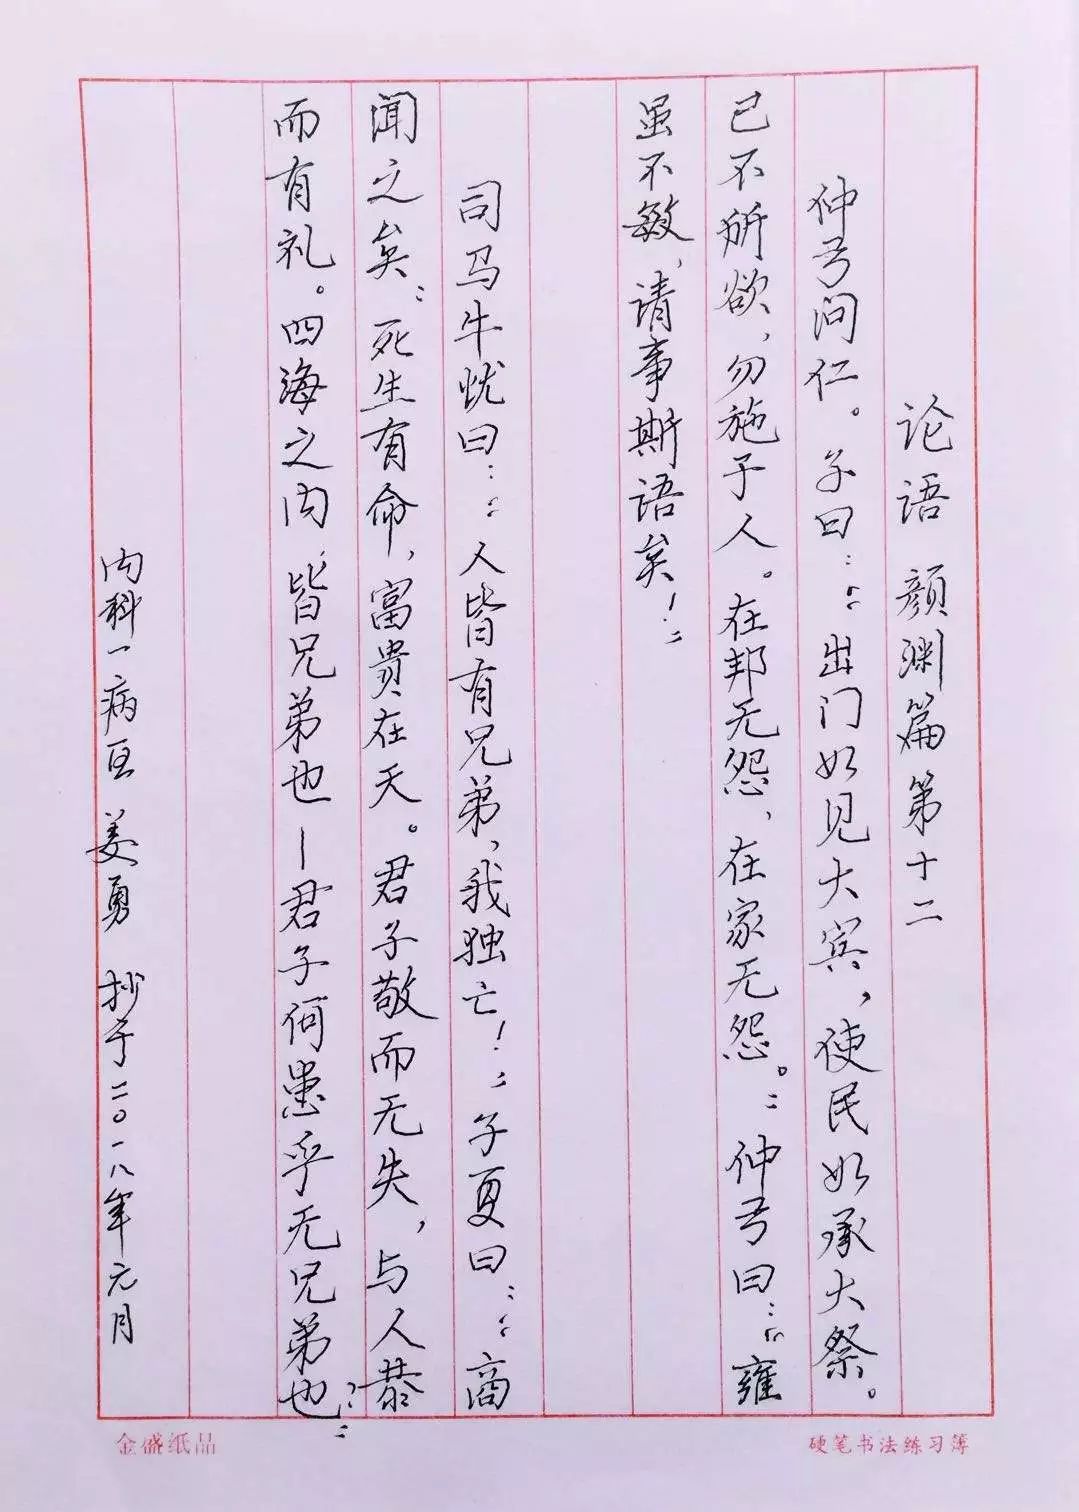 论语 颜渊篇第十二
仲弓问仁。子曰：“出门如见大宾，使民如承大祭。
己不所欲，勿施于人。在邦无怨，在家无怨。”仲弓曰：“雍
虽不敏，请事斯语矣！”
司马牛忧曰：“人皆有兄弟，我独亡！”子夏曰：“商
闻之矣：死生有命，富贵在天。君子敬而无失，与人恭
而有礼。四海之内，皆兄弟也—君子何患乎无兄弟也？”
内科一病区 姜勇 抄于二〇一八年元月
金盛纸品
硬笔书法练习簿